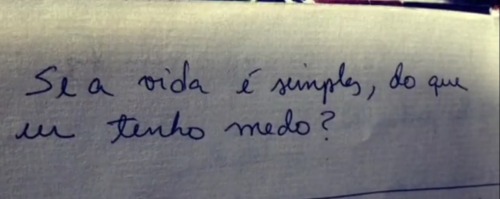 Se a vida é simples, do que
eu tenho medo?